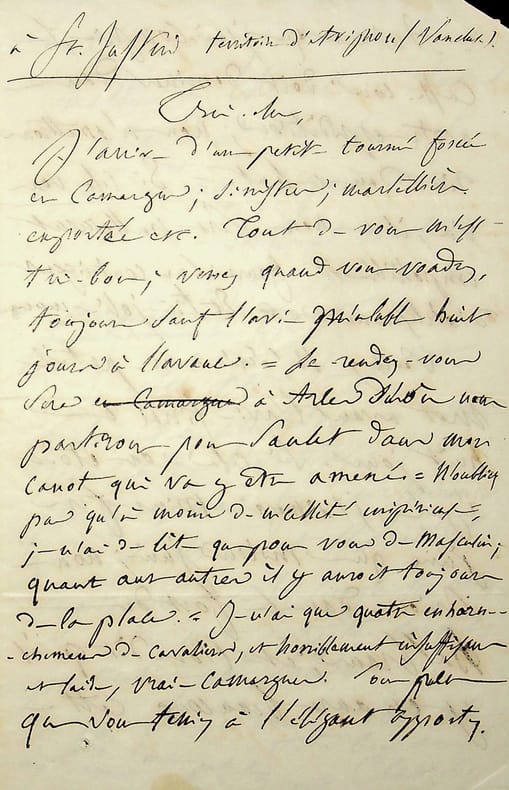 à St. Justin territoire d'Avignon (Vaucluse).
J'arrive d'un petit tourné forcée
en Camargue; Sinistre; martellière
emportée etc. Tout de vous m'est
très-bon; venez quand vous voudrez,
toujours sauf l'avis préalable huit
jours à l'avance. = Le rendez-vous
sera en Camargue à Arles D'où nous
partirons pour dans mon
canot qui va y être amené = N'oubliez
pas qu'à moins de nécessité impérieuse,
je n'ai de lit que pour vous de Masculin;
quant aux autres il y auroit toujours
de la place. = Je n'ai que quatre enharna-
-chemens de cavaliers, et horriblement insuffisans
et laids, vrai-Camargues. Pour peu
que vous teniez à l'élégant apportez.